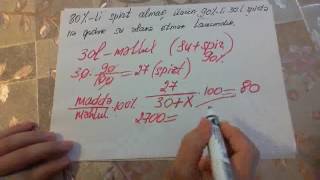 80%-li spirt almaq üçün 90%-li 30l spirtə
nə qədər su əlavə etmək lazımdır.
30l - məhlul (su+spirt)
90%
30 · 90/100 = 27 (spirt)
maddə/məhlul · 100% 27/30+x · 100 = 80
2700 =